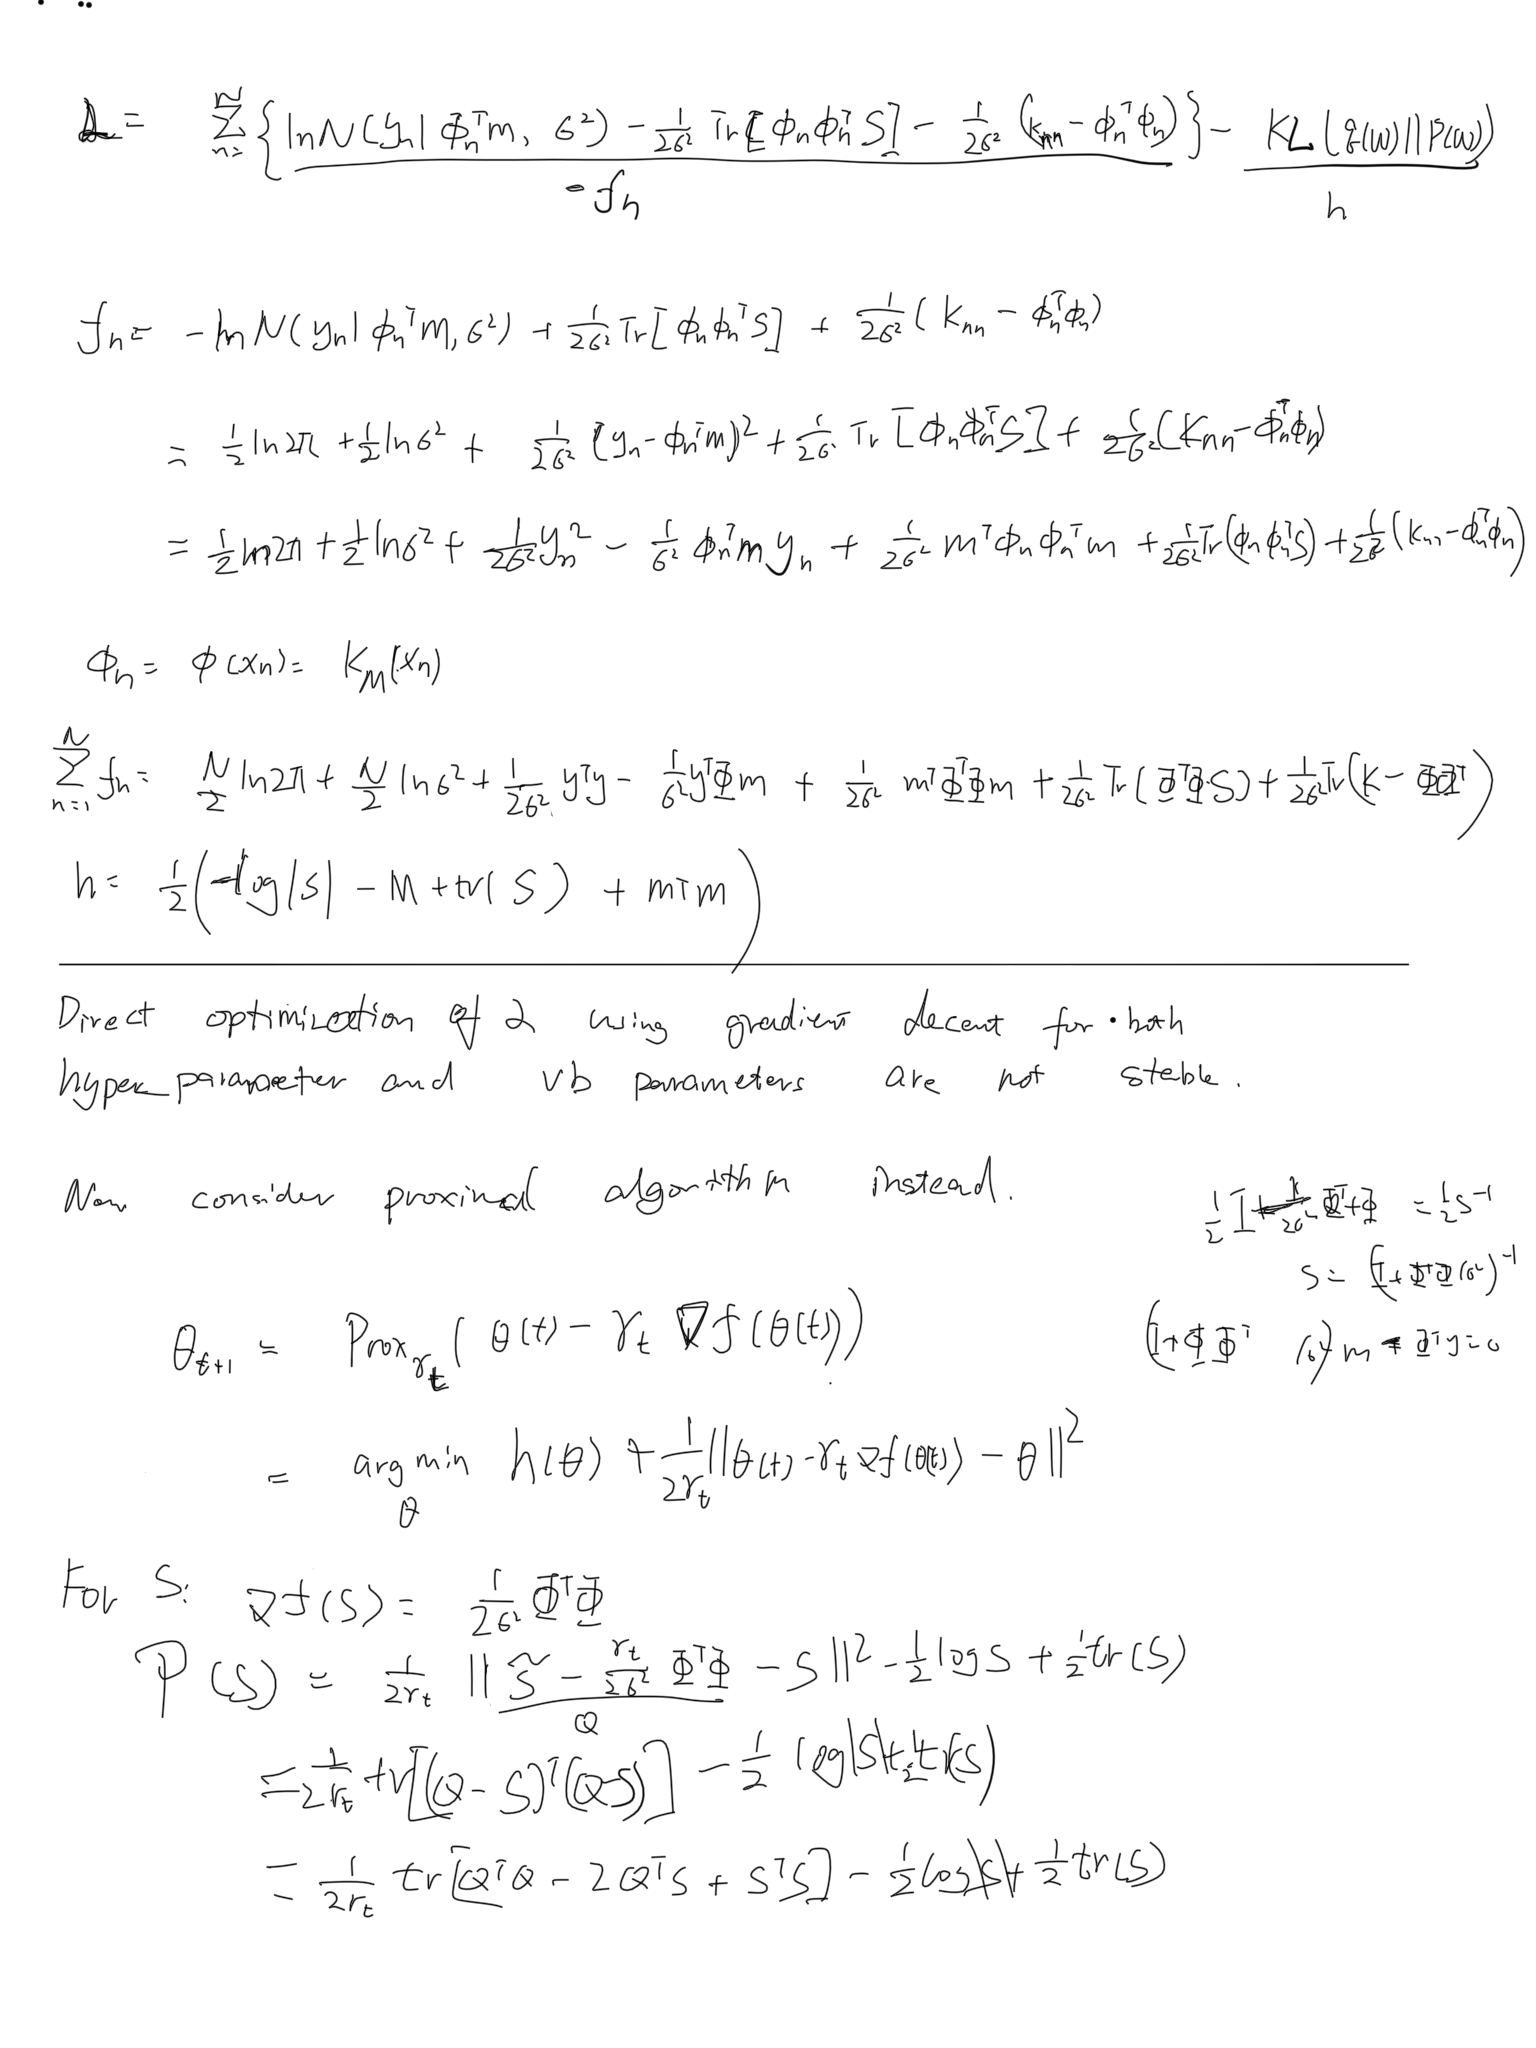 L = Σ_{n=1}^{N} { ln N(y_n | ϕ_n^T m, σ²) − 1/(2σ²) Tr[ϕ_n ϕ_n^T S] − 1/(2σ²) (k_nn − ϕ_n^T ϕ_n) } − KL(q(w)||P(w))
−f_n h
f_n = −ln N(y_n | ϕ_n^T m, σ²) + 1/(2σ²) Tr[ϕ_n ϕ_n^T S] + 1/(2σ²) (k_nn − ϕ_n^T ϕ_n)
= 1/2 ln 2π + 1/2 ln σ² + 1/(2σ²) (y_n − ϕ_n^T m)² + 1/(2σ²) Tr[ϕ_n ϕ_n^T S] + 1/(2σ²) (k_nn − ϕ_n^T ϕ_n)
= 1/2 ln 2π + 1/2 ln σ² + 1/(2σ²) y_n² − 1/σ² ϕ_n^T m y_n + 1/(2σ²) m^T ϕ_n ϕ_n^T m + 1/(2σ²) Tr(ϕ_n ϕ_n^T S) + 1/(2σ²) (k_nn − ϕ_n^T ϕ_n)
ϕ_n = ϕ(x_n) = K_M(x_n)
Σ_{n=1}^{N} f_n = N/2 ln 2π + N/2 ln σ² + 1/(2σ²) y^T y − 1/σ² y^T Φ m + 1/(2σ²) m^T Φ^T Φ m + 1/(2σ²) Tr(Φ^T Φ S) + 1/(2σ²) Tr(K − ΦΦ^T)
h = 1/2 (−log|S| − M + tr(S) + m^T m)
Direct optimization of L using gradient decent for both
hyper parameter and vb parameters are not stable.
Now consider proximal algorithm instead.
1/2 I + 1/(2σ²) Φ^T Φ = 1/2 S^{-1}
S = (I + Φ^T Φ /σ²)^{-1}
(I + Φ Φ^T /σ²) m Φ^T y = 0
θ_{t+1} = Prox_{γ_t} ( θ(t) − γ_t ∇f(θ(t)) )
= arg min_θ h(θ) + 1/(2γ_t) ||θ(t) − γ_t ∇f(θ(t)) − θ||²
For S: ∇f(S) = 1/(2σ²) Φ^T Φ
P(S) = 1/(2γ_t) || S̃ − γ_t/(2σ²) Φ^T Φ − S ||² − 1/2 log S + 1/2 tr(S)
Q
= 1/(2γ_t) tr[(Q − S)^T (Q − S)] − 1/2 log|S| + 1/2 tr(S)
= 1/(2γ_t) tr[Q^T Q − 2 Q^T S + S^T S] − 1/2 log|S| + 1/2 tr(S)